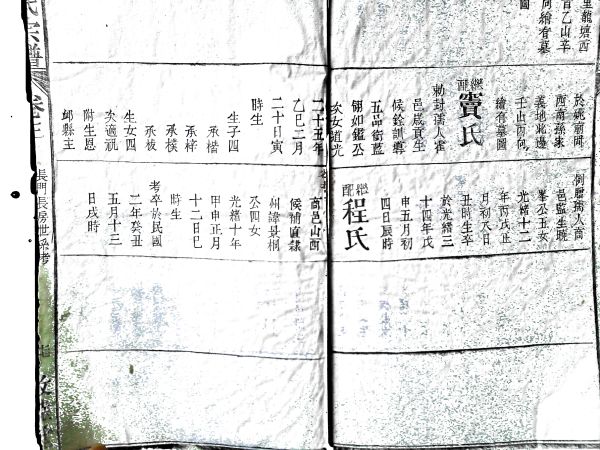 里龍塘西
首乙山辛
向繪有墓
圖
於姚前河
西南孫家
義地北邊
壬山丙向
繪有墓圖
繼配竇氏
勅封孺人霍
邑歲貢生
候銓訓導
五品銜藍
翎如鑑公
次女道光
二十五年
乙巳二月
二十日寅
時生
生子四
承楷
承梓
承樸
承棫
生女四
次適祝
附生恩
邱縣主
例贈孺人商
邑監生曉
峯公五女
光緒十二
年丙戌正
月初八日
丑時生卒
於光緒三
十四年戊
申五月初
四日辰時
繼配程氏
商邑山西
候補直隸
州諱景桐
公四女
光緒十年
甲申正月
十二日巳
時生
考卒於民國
二年癸丑
五月十三
日戌時
氏宗譜
卷三
長門長房世系考